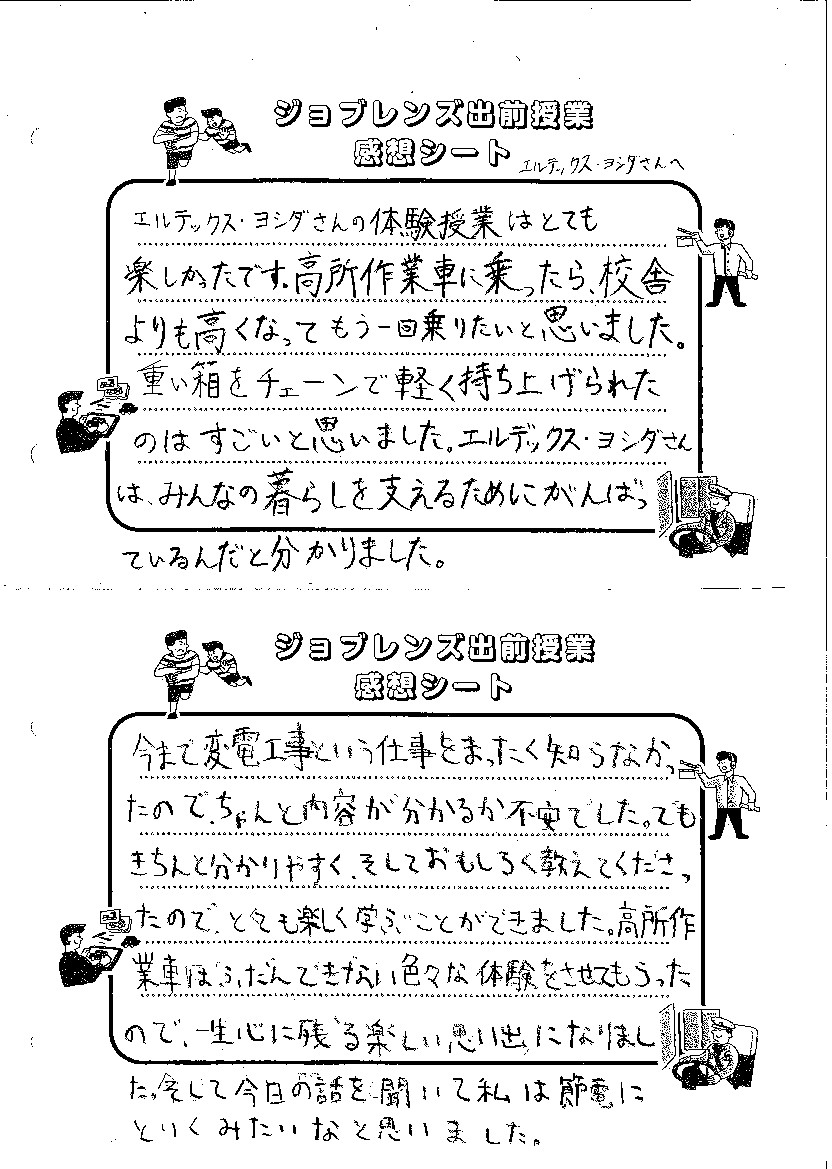 ジョブレンズ出前授業
感想シート
エルテックス・ヨシダさんへ
エルテックス・ヨシダさんの体験授業はとても
楽しかったです。高所作業車に乗ったら、校舎
よりも高くなってもう一回乗りたいと思いました。
重い箱をチェーンで軽く持ち上げられた
のはすごいと思いました。エルデックス・ヨシダさん
は、みんなの暮らしを支えるためにがんばっ
ているんだと分かりました。
ジョブレンズ出前授業
感想シート
今まで変電工事という仕事をまったく知らなかっ
たので、ちゃんと内容が分かるか不安でした。でも
きちんと分かりやすく、そしておもしろく教えてくださっ
たので、とても楽しく学ぶことができました。高所作
業車はふだんできない色々な体験をさせてもらった
ので、一生心に残る楽しい思い出になりまし
た。そして今日の話を聞いて私は節電に
とりくみたいなと思いました。